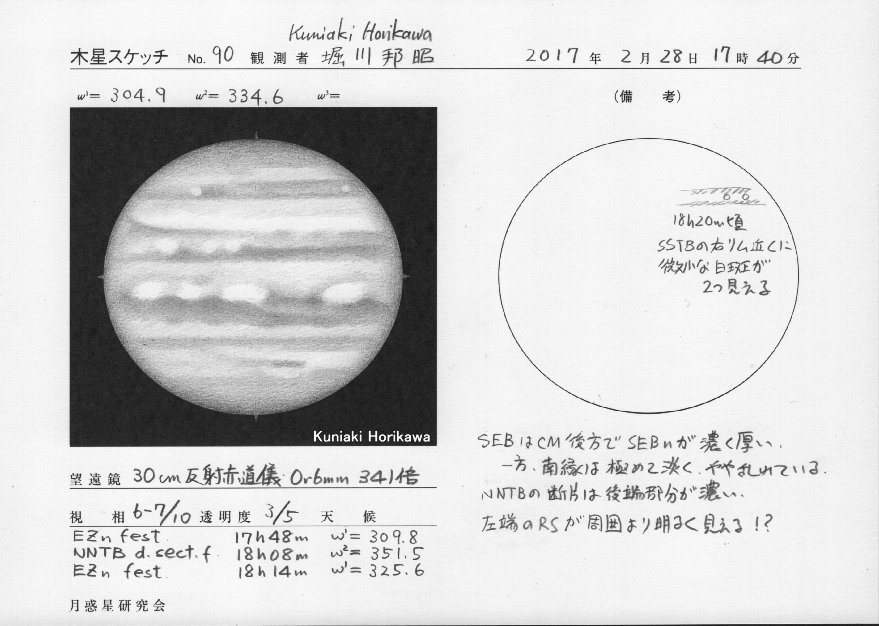 Kuniaki Horikawa
木星スケッチ No. 90 観測者 堀川邦昭
2017年 2月 28日 17時 40分
ω¹= 304.9 ω²= 334.6 ω³=
(備 考)
18h20m頃
SSTBの右リム近くに
微小な白斑が
2つ見える
Kuniaki Horikawa
望遠鏡 30cm反射赤道儀 Or6mm 341倍
視相 6-7/10 透明度 3/5 天候
EZn fest. 17h48m ω¹= 309.8
NNTB d. sect. f. 18h08m ω²= 351.5
EZn fest 18h14m ω¹= 325.6
月惑星研究会
SEBはCM後方でSEBnが濃く厚い.
一方, 南縁は極めて淡く, やや乱れている.
NNTBの断片は後端部分が濃い.
左端のRSが周囲より明るく見える!?